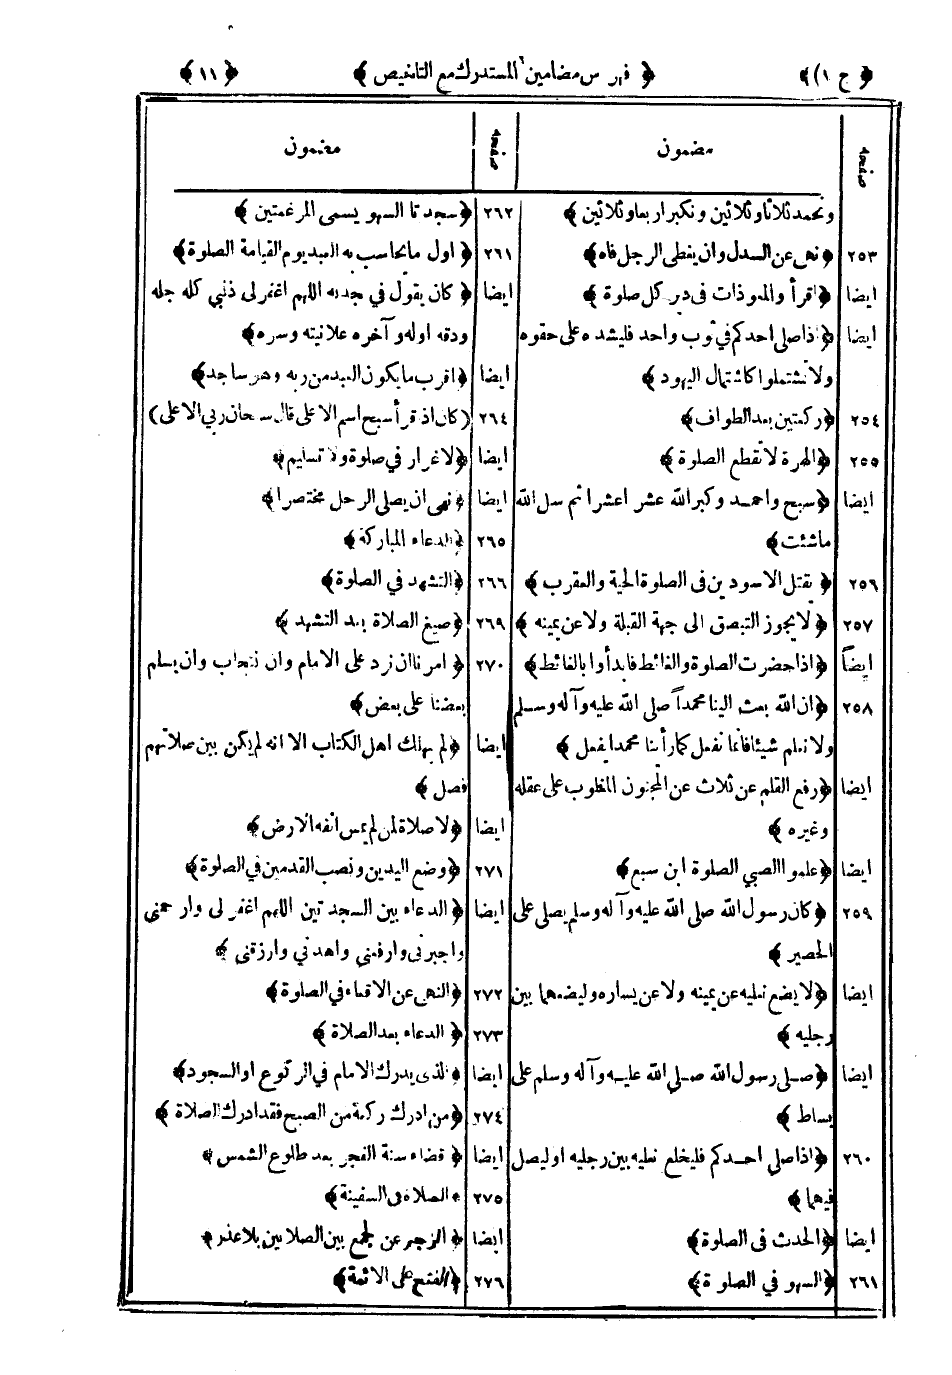 ﴿ ج ١ ﴾ ﴿ فهرس مضامين المستدرك مع التلخيص ﴾ ﴿ ١١ ﴾
صفحه مضمون
وتحمد ثلاثا وثلاثين وتكبر اربعا وثلاثين ﴾
٢٥٣ ﴿ نهى عن السدل وان يغطى الرجل فاه ﴾
ايضا ﴿ اقرأ والمعوذات فى دبر كل صلوة ﴾
ايضا ﴿ اذا صلى احدكم في ثوب واحد فليشده على حقوه
ولا تشتملوا كاشتمال اليهود ﴾
٢٥٤ ﴿ ركعتين بعد الطواف ﴾
٢٥٥ ﴿ الهرة لا تقطع الصلوة ﴾
ايضا ﴿ سبح واحمد وكبر الله عشرا عشرا ثم سل الله
ماشئت ﴾
٢٥٦ ﴿ يقتل الاسودين فى الصلوة الحية والعقرب ﴾
٢٥٧ ﴿ لا يجوز التبصق الى جهة القبلة ولا عن يمينه ﴾
ايضاً ﴿ اذا حضرت الصلوة والغائط فابدأوا بالغائط ﴾
٢٥٨ ﴿ ان الله بعث الينا محمداً صلى الله عليه وآله وسلم
ولا نعلم شيئا فانما نفعل كما رأينا محمدا يفعل ﴾
ايضا ﴿ رفع القلم عن ثلاث عن المجنون المغلوب على عقله
وغيره ﴾
ايضا ﴿ علموا الصبي الصلوة ابن سبع ﴾
٢٥٩ ﴿ كان رسول الله صلى الله عليه وآله وسلم يصلى على
الحصير ﴾
ايضا ﴿ لا يضع نعليه عن يمينه ولا عن يساره وليضعهما بين
رجليه ﴾
ايضا ﴿ صلى رسول الله صلى الله عليه وآله وسلم على
بساط ﴾
٢٦٠ ﴿ اذا صلى احدكم فليخلع نعليه بين رجليه او ليصل
فيهما ﴾
ايضا ﴿ الحدث فى الصلوة ﴾
٢٦١ ﴿ السهو في الصلوة ﴾
صفحه مضمون
٢٦٢ ﴿ سجدتا السهو يسمى المرغمتين ﴾
٢٦١ ﴿ اول ما يحاسب به العبد يوم القيامة الصلوة ﴾
ايضا ﴿ كان يقول في سجدته اللهم اغفر لى ذنبي كله جله
ودقه اوله وآخره علانيته وسره ﴾
ايضا ﴿ اقرب ما يكون العبد من ربه وهو ساجد ﴾
٢٦٤ ( كان اذا قرأ سبح اسم الاعلى قال سبحان ربي الاعلى )
ايضا ﴿ لا غرار في صلوة ولا تسليم ﴾
ايضا ﴿ نهى ان يصلى الرجل مختصرا ﴾
٢٦٥ ﴿ الدعاء المباركة ﴾
٢٦٦ ﴿ التشهد في الصلوة ﴾
٢٦٩ ﴿ صيغ الصلاة بعد التشهد ﴾
٢٧٠ ﴿ امرنا ان نرد على الامام وان نتحاب وان يسلم
بعضنا على بعض ﴾
ايضا ﴿ لم يهلك اهل الكتاب الا انه لم يكن بين صلاتهم
فصل ﴾
ايضا ﴿ لا صلاة لمن لم يمس انفه الارض ﴾
٢٧١ ﴿ وضع اليدين ونصب القدمين في الصلوة ﴾
ايضا ﴿ الدعاء بين السجدتين اللهم اغفر لى وارحمني
واجبرنى وارفعني واهدني وارزقنى ﴾
٢٧٢ ﴿ النهى عن الاقعاء في الصلوة ﴾
٢٧٣ ﴿ الدعاء بعد الصلاة ﴾
ايضا ﴿ الذى يدرك الامام في الركوع او السجود ﴾
٢٧٤ ﴿ من ادرك ركعة من الصبح فقد ادرك الصلاة ﴾
ايضا ﴿ قضاء سنة الفجر بعد طلوع الشمس ﴾
٢٧٥ ﴿ الصلاة فى السفينة ﴾
ايضا ﴿ الزجر عن الجمع بين الصلاتين بلا عذر ﴾
٢٧٦ ﴿ الفتح على الائمة ﴾